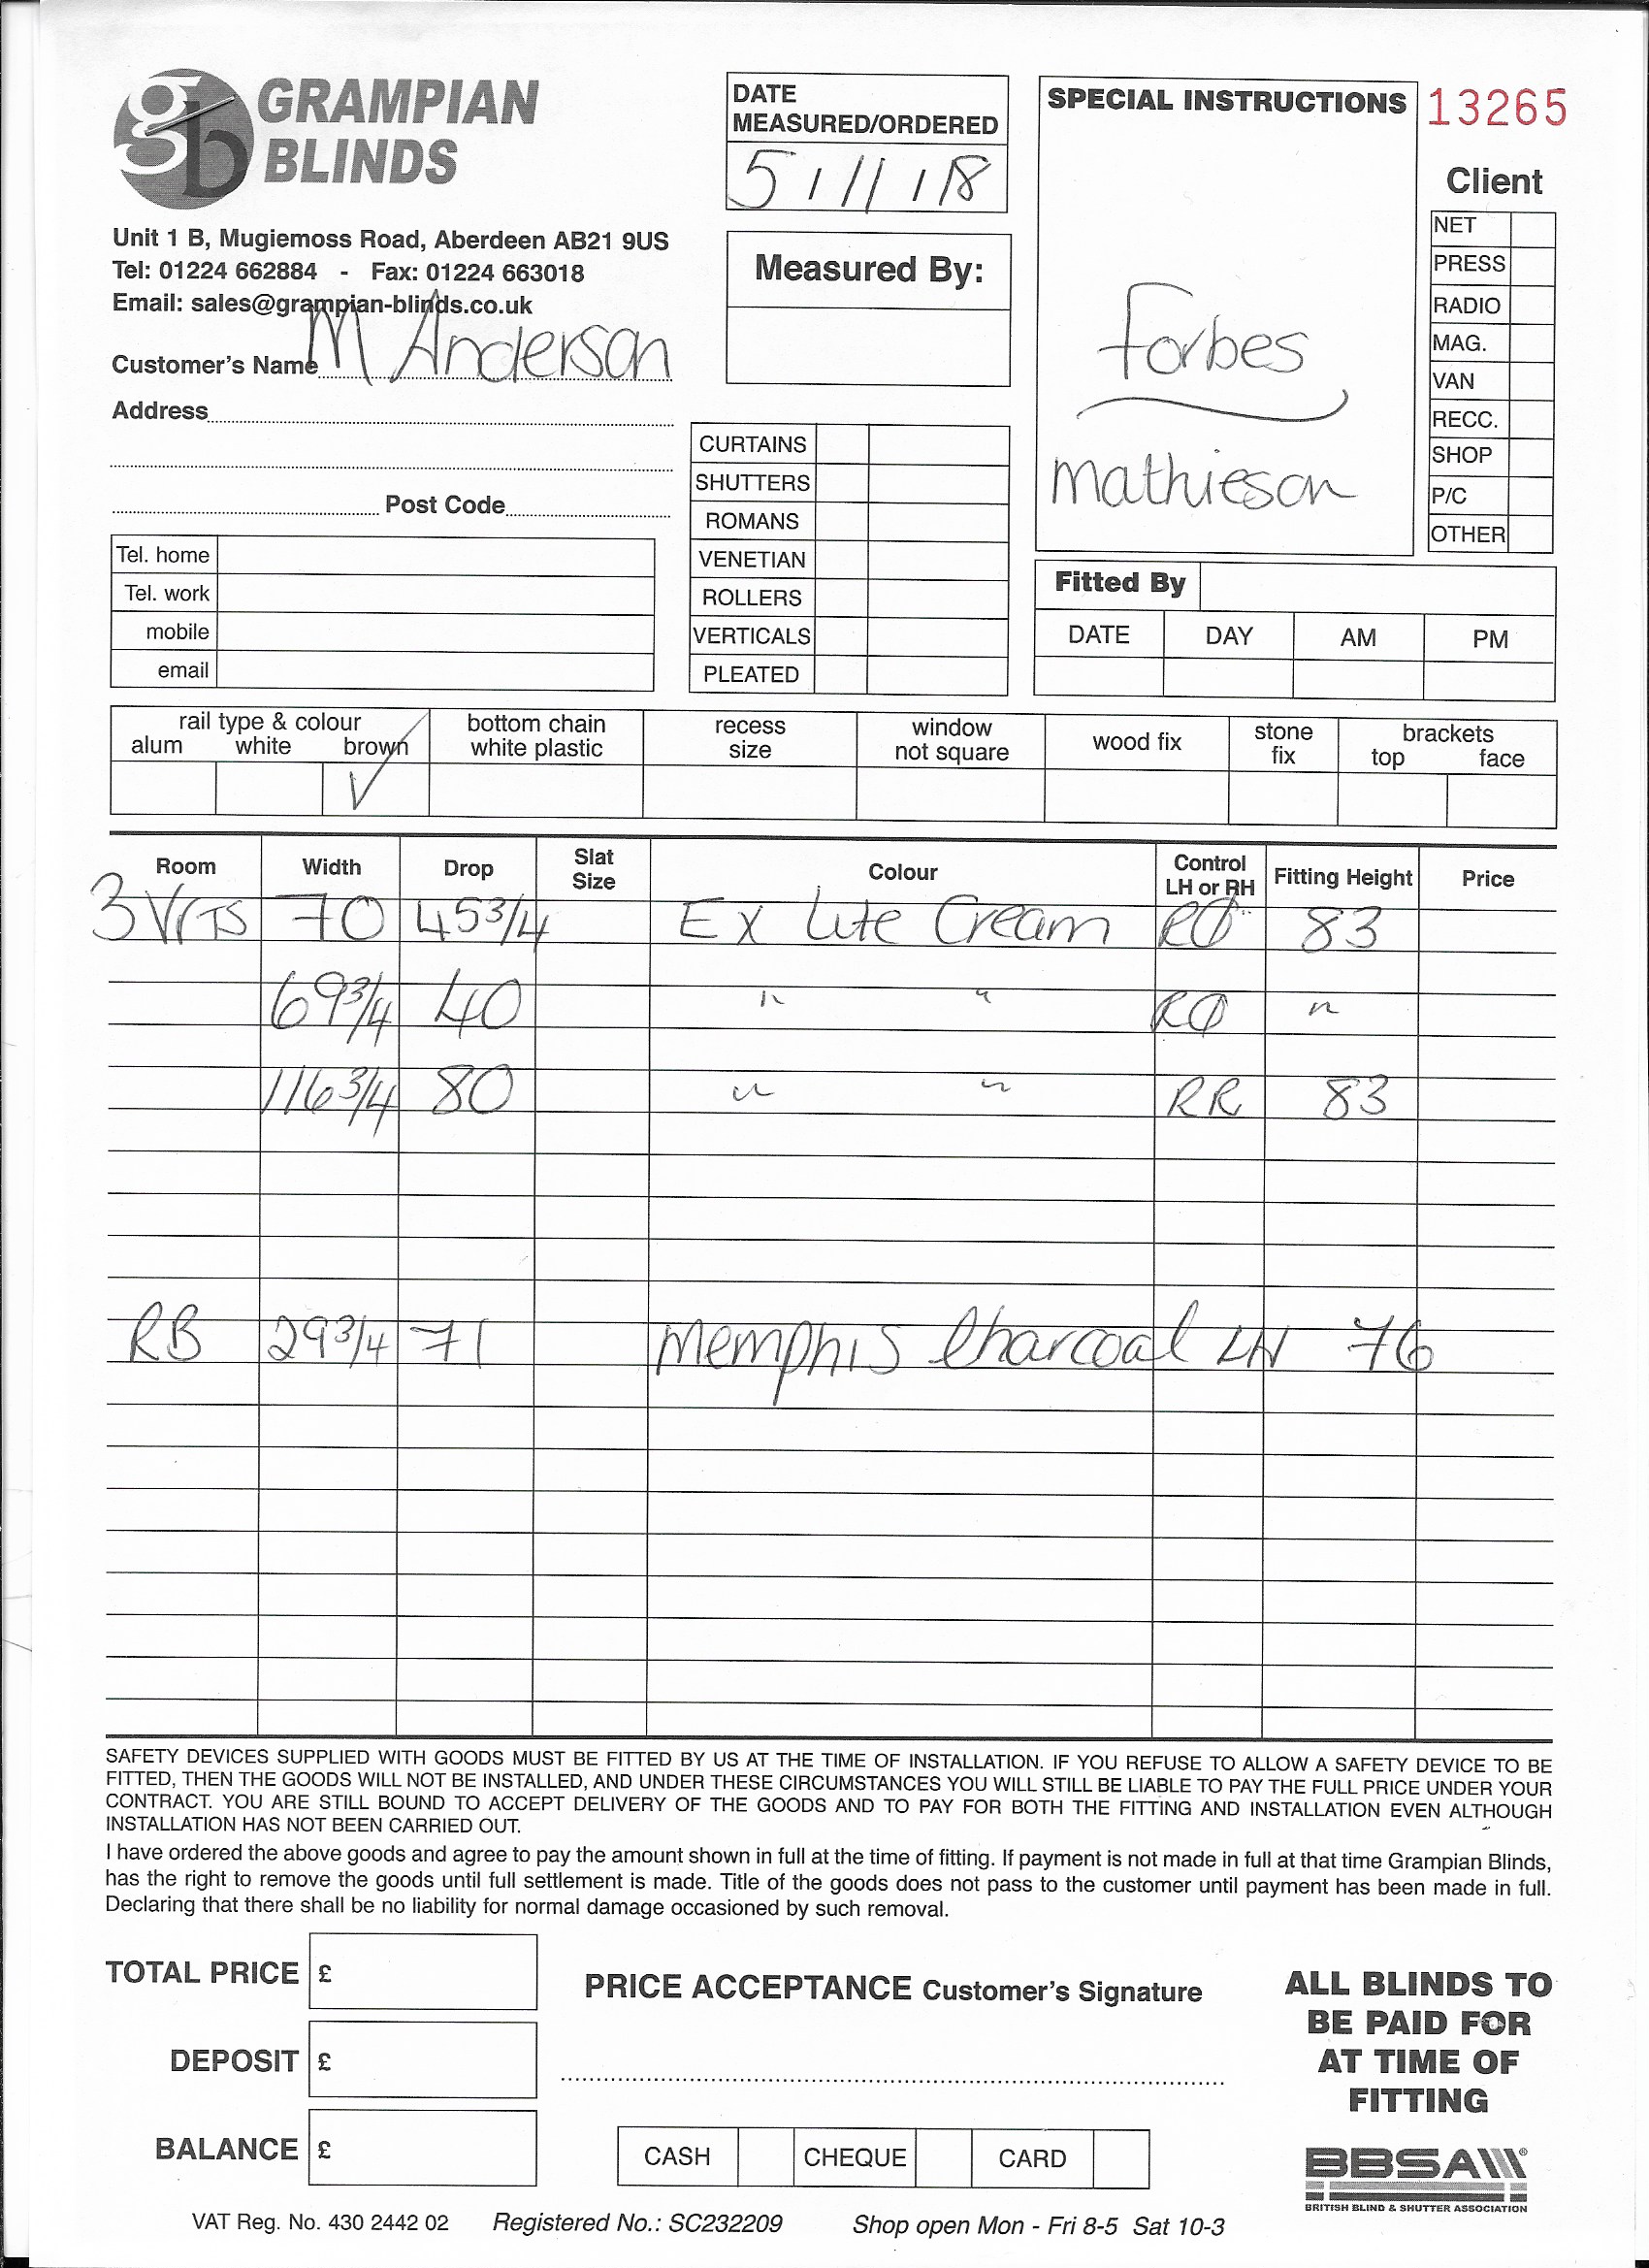 gb GRAMPIAN BLINDS
Unit 1 B, Mugiemoss Road, Aberdeen AB21 9US
Tel: 01224 662884 - Fax: 01224 663018
Email: sales@grampian-blinds.co.uk
Customer's Name M Anderson
Address
Post Code
Tel. home
Tel. work
mobile
email
DATE
MEASURED/ORDERED
5/11/18
Measured By:
CURTAINS
SHUTTERS
ROMANS
VENETIAN
ROLLERS
VERTICALS
PLEATED
SPECIAL INSTRUCTIONS
Forbes
Mathieson
13265
Client
NET
PRESS
RADIO
MAG.
VAN
RECC.
SHOP
P/C
OTHER
Fitted By
DATE DAY AM PM
rail type & colour
alum white brown
bottom chain
white plastic
recess
size
window
not square
wood fix
stone
fix
brackets
top face
Room Width Drop Slat Size Colour Control LH or RH Fitting Height Price
3 Vrts 70 45 3/4 Ex Lite Cream 83
69 3/4 40 " " "
116 3/4 80 " " RR 83
RB 29 3/4 71 Memphis Charcoal LH 76
SAFETY DEVICES SUPPLIED WITH GOODS MUST BE FITTED BY US AT THE TIME OF INSTALLATION. IF YOU REFUSE TO ALLOW A SAFETY DEVICE TO BE
FITTED, THEN THE GOODS WILL NOT BE INSTALLED, AND UNDER THESE CIRCUMSTANCES YOU WILL STILL BE LIABLE TO PAY THE FULL PRICE UNDER YOUR
CONTRACT. YOU ARE STILL BOUND TO ACCEPT DELIVERY OF THE GOODS AND TO PAY FOR BOTH THE FITTING AND INSTALLATION EVEN ALTHOUGH
INSTALLATION HAS NOT BEEN CARRIED OUT.
I have ordered the above goods and agree to pay the amount shown in full at the time of fitting. If payment is not made in full at that time Grampian Blinds,
has the right to remove the goods until full settlement is made. Title of the goods does not pass to the customer until payment has been made in full.
Declaring that there shall be no liability for normal damage occasioned by such removal.
TOTAL PRICE £
DEPOSIT £
BALANCE £
PRICE ACCEPTANCE Customer's Signature
CASH CHEQUE CARD
ALL BLINDS TO
BE PAID FOR
AT TIME OF
FITTING
BBSA
BRITISH BLIND & SHUTTER ASSOCIATION
VAT Reg. No. 430 2442 02 Registered No.: SC232209 Shop open Mon - Fri 8-5 Sat 10-3